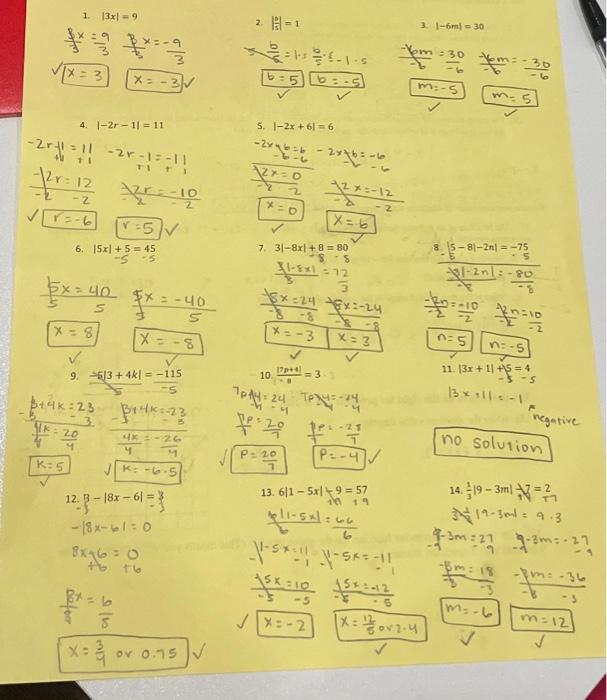 1. |3x| = 9
3x = 9 3x = -9
3 3 3 3
√ x = 3 x = -3 √
2. |b/5| = 1
5 · b/5 = 1 · 5 b/5 · 5 = -1 · 5
b = 5 b = -5
3. |-6m| = 30
-6m = 30 -6m = -30
-6 -6 -6 -6
m = -5 m = 5
4. |-2r - 1| = 11
-2r - 1 = 11 -2r - 1 = -11
+1 +1 +1 +1
-2r = 12 -2r = -10
-2 -2 -2 -2
√ r = -6 r = 5 √
5. |-2x + 6| = 6
-2x + 6 = 6 -2x + 6 = -6
-6 -6 -6 -6
-2x = 0 -2x = -12
-2 -2 -2 -2
x = 0 x = 6
6. |5x| + 5 = 45
-5 -5
5x = 40 5x = -40
5 5 5 5
x = 8 x = -8
7. 3|-8x| + 8 = 80
-8 -8
3|-8x| = 72
3 3
-8x = 24 -8x = -24
-8 -8 -8 -8
x = -3 x = 3
8. |5 - 8|-2n| = -75
-5 -5
-8|-2n| = -80
-8
-2n = -10 -2n = 10
-2 -2 -2 -2
n = 5 n = -5
9. -5|3 + 4k| = -115
-5
3 + 4k = 23 3 + 4k = -23
-3 -3 -3
4k = 20 4k = -26
4 4 4 4
k = 5 √ k = -6.5
10. |7p+4|/8 = 3
7p+4 = 24 7p+4 = -24
-4 -4 -4
7p = 20 7p = -28
7 7 7 7
√ p = 20/7 p = -4 √
11. |3x + 1| + 5 = 4
-5 -5
|3x + 1| = -1
negative
no solution
12. 3 - |8x - 6| = 3
-3 -3
-|8x - 6| = 0
8x - 6 = 0
+6 +6
8x = 6
8 8
x = 3/4 or 0.75 √
13. 6|1 - 5x| - 9 = 57
+9 +9
6|1-5x| = 66
6 6
1-5x = 11 1-5x = -11
-1 -1
-5x = 10 -5x = -12
-5 -5 -5 -5
√ x = -2 x = 12/5 or 2.4
14. 1/3|9 - 3m| - 7 = 2
+7 +7
3 · 1/3 |9-3m| = 9 · 3
9-3m = 27 9-3m = -27
-9 -9 -9 -9
-3m = 18 -3m = -36
-3 -3 -3 -3
m = -6 m = 12